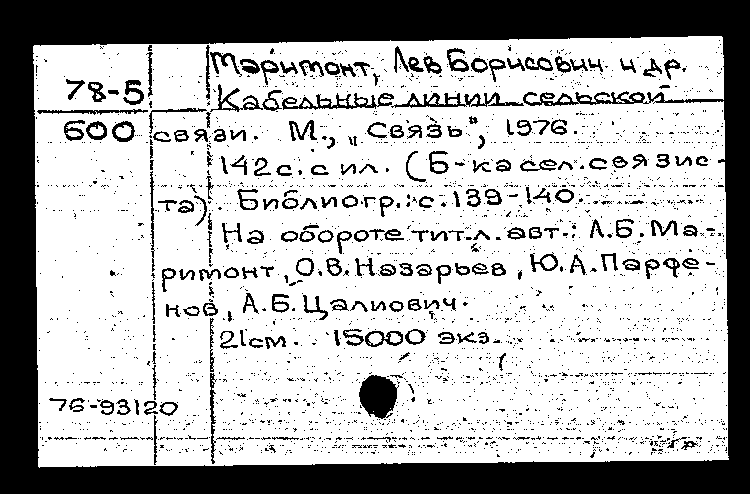 Маримонт, Лев Борисович и др.
78-5 Кабельные линии сельской
600 связи. М., „Связь", 1976.
142с. с ил. (Б-ка сел. связис-
та). Библиогр.: с. 139-140.
На обороте тит. л. авт.: Л.Б. Ма-
римонт, О.В. Назарьев, Ю.А. Парфе-
нов, А.Б. Цалиович.
21см. 15000 экз.
76-93120